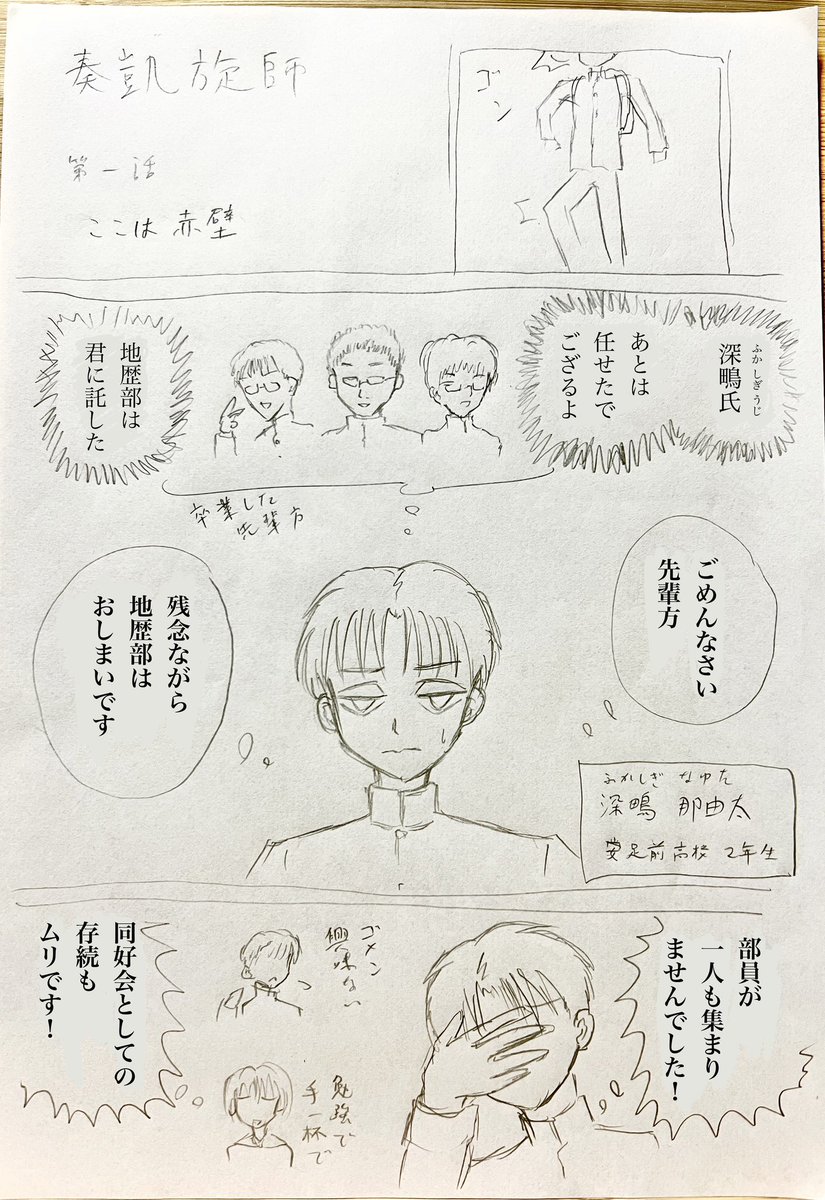 奏凱旋師
第一話
ここは赤壁
ゴン
ふかしぎうじ
深鴫氏
あとは
任せたで
ござるよ
地歴部は
君に託した
卒業した
先輩方
ごめんなさい
先輩方
残念ながら
地歴部は
おしまいです
ふかしぎ なゆた
深鴫 那由太
2年生
部員が
一人も集まり
ませんでした!
ゴメン
興味ない
勉強で
手一杯で
同好会としての
存続も
ムリです!